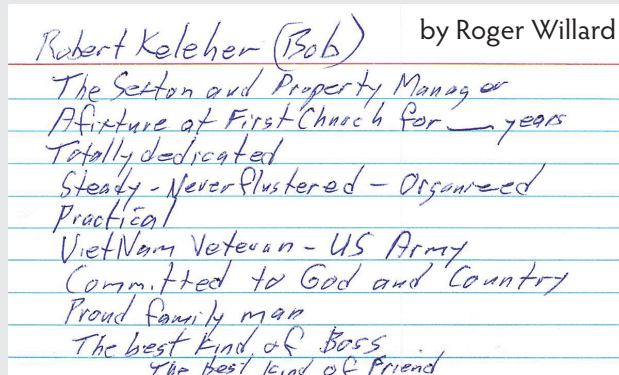 by Roger Willard
Robert Keleher (Bob)
The Sexton and Property Manager
A fixture at First Church for __ years
Totally dedicated
Steady - Never flustered - Organized
Practical
VietNam Veteran - US Army
Committed to God and Country
Proud family man
The best kind of Boss
The best kind of Friend